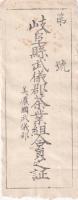 第 號
岐阜縣武儀郡奈業組合員之証
美濃國武儀郡